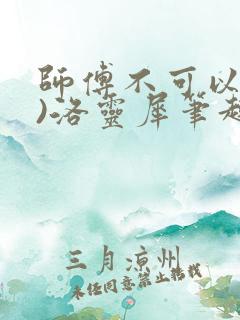 師傅不可以
)洛靈犀筆趣
三月涼州
未经同意禁止转载